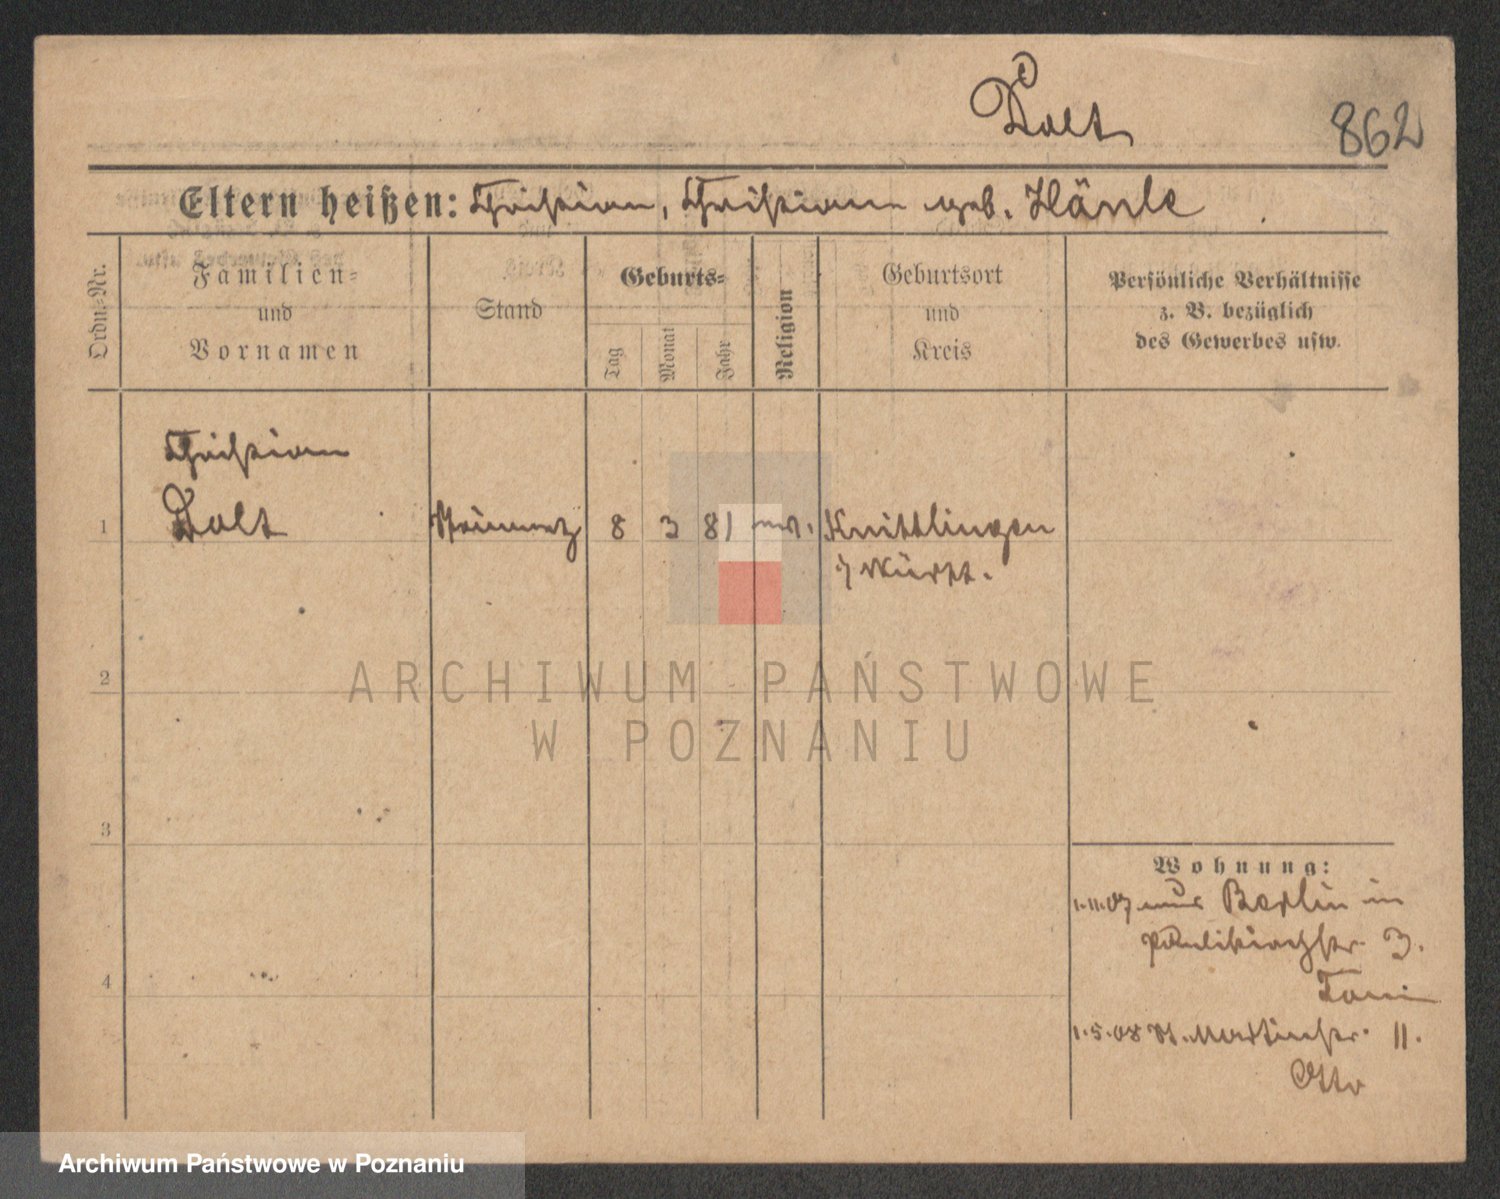 Dolt
862
Eltern heißen: Christian, Christiane geb. Hänle
Ordn.-Nr.
Familien-
und
Vornamen
Stand
Geburts-
Tag
Monat
Jahr
Religion
Geburtsort
und
Kreis
Persönliche Verhältnisse
z. B. bezüglich
des Gewerbes usw.
Christian
1 Dolt 8 3 81 ev. Knittlingen
i/ Württ.
ARCHIWUM PAŃSTWOWE
W POZNANIU
2
3
4
Wohnung:
1.11.07 aus Berlin in
Paulikirchstr. 3.
1.5.08 St. Martinstr. 11.
Otto
Archiwum Państwowe w Poznaniu